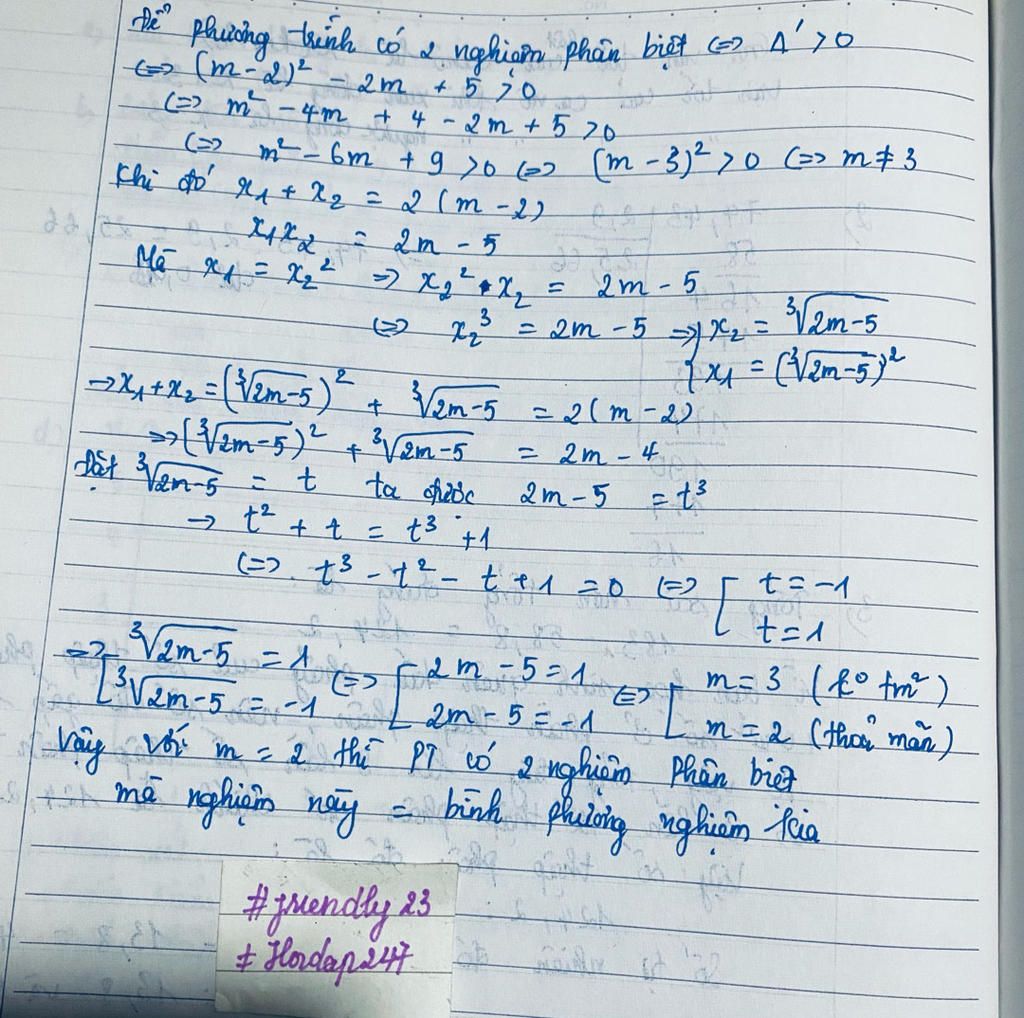 Để phương trình có 2 nghiệm phân biệt <=> Δ' > 0
<=> (m - 2)² = 2m + 5 > 0
<=> m² - 4m + 4 - 2m + 5 > 0
<=> m² - 6m + 9 > 0 <=> (m - 3)² > 0 <=> m ≠ 3
Khi đó x₁ + x₂ = 2(m - 2)
x₁x₂ = 2m - 5
Mà x₁ = x₂² => x₂² • x₂ = 2m - 5
<=> x₂³ = 2m - 5 => { x₂ = ∛(2m-5)
x₁ = (∛(2m-5))²
→ x₁ + x₂ = (∛(2m-5))² + ∛(2m-5) = 2(m - 2)
=> (∛(2m-5))² + ∛(2m-5) = 2m - 4
Đặt ∛(2m-5) = t ta được 2m - 5 = t³
→ t² + t = t³ + 1
<=> t³ - t² - t + 1 = 0 <=> [ t = -1
t = 1
=> [ ∛(2m-5) = 1 <=> [ 2m - 5 = 1 <=> [ m = 3 (k° tm²)
∛(2m-5) = -1 2m - 5 = -1 m = 2 (thoả mãn)
Vậy với m = 2 thì PT có 2 nghiệm phân biệt
mà nghiệm này = bình phương nghiệm kia
#friendly23
#Hoidap247